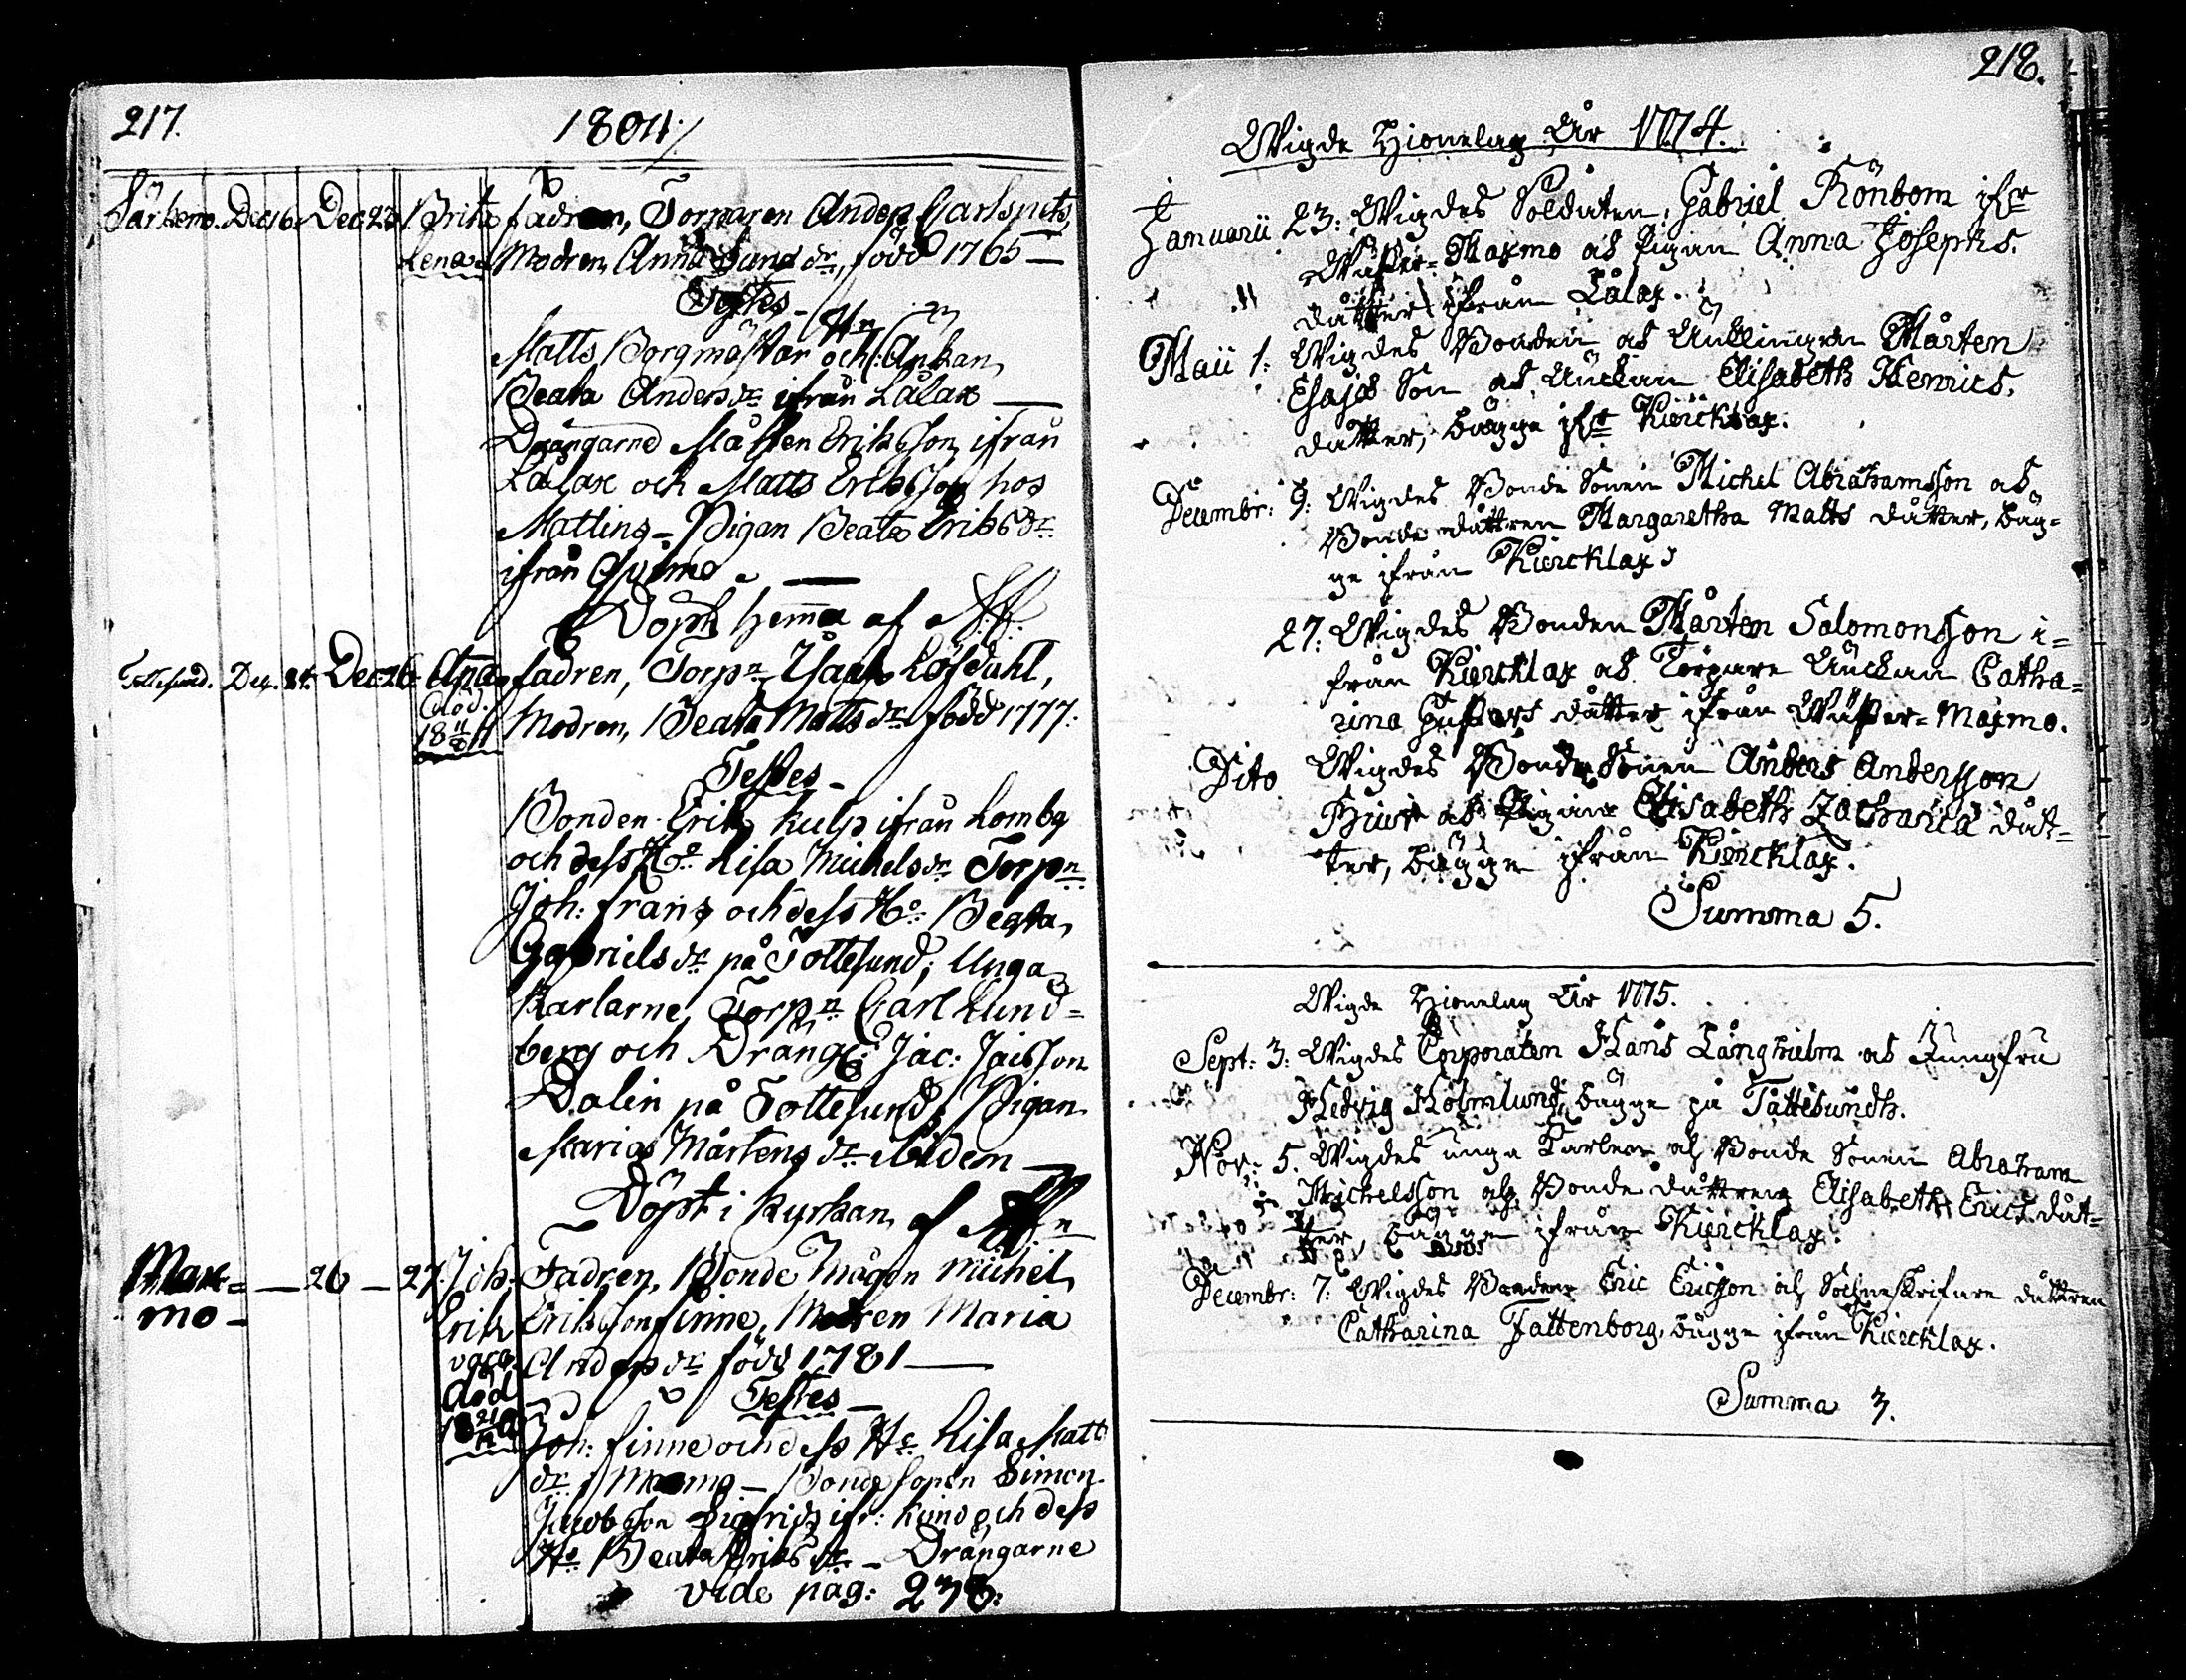 217.
1804
Särkemo. Dec. 16. Dec. 23. Brita fadren, Torparen Anders Carls
Lena Modren, Anna dr, född 1765 —
Testes —
Matts Borgmästar och Änkan
Beata Anders dr ifrån Lålax —
Drängarne Mårten Eriksson ifrån
Lålax och Matts Eriksson hos
Matlins — Pigan Beata Eriks dr
ifrån
Döpt hemma af
Tottesund. Dec. 24. Dec. 26 Anna fadren, Torpn Isaac Löfdahl,
död.
18 11/8 11 Modren, Beata Matts dr född 1777.
Testes —
Bonden Erik Kulp ifrån Komby
och dess Ho Lisa Michels dr Torpn
Joh: frans och dess Ho Beata
Gabriels dr på Tottesund; Unga
Karlarne, Torpn Carl Lund=
berg och Dräng: Jac: Jacsson
Dalin på Tottesund, Pigan
Maria Mårtens dr ibidem —
Döpt i kyrkan af
Max= — 26 — 27. Joh: Fadren, Bonde Mågen Michel
mo — Erik Eriksson finne, Modren Maria
Anders dr född 1781 —
död Testes —
Joh: finne och dess Ho Lisa Matts
dr i Maxmo — Bonde sonen Simon
Jacobsson Sigfrids ifr: Kund och dess
Ho Beata Eriks dr — Drängarne
vide pag: 238:
218.
Wigde Hionelag År 1774.
Januarii 23: Wigdes Soldaten Gabriel Rönbom ifr
Wäster=Maxmo ok Pigan Anna Josephs.
dåtter ifrån Lålax.
Maii 1: Wigdes Bonden ok Änklingen Mårten
Esajas Son ok Änckan Elisabeth Henrics.
dåtter, bägge ifr Kiercklax.
Decembr: 9: Wigdes Bonde Sonen Michel Abrahamsson ok
Bonde dåttren Margaretha Matts dåtter, bäg=
ge ifrån Kiercklax
27: Wigdes Bonden Mårten Salomonsson i=
från Kiercklax ok Torpare Änckan Catha=
rina Gustavs dåtter ifrån Wäster=Maxmo.
Dito Wigdes Bonde Sonen Anders Andersson
ok Pigan Elisabeth Zachariæ dåt=
ter, bägge ifrån Kiercklax.
Summa 5.
Wigde Hionelag År 1775.
Sept: 3: Wigdes Corporalen Hans Långhielm ok Jungfru
Hedvig Holmlund, bägge på Tåttesundh.
Nov: 5. Wigdes unga Karlen ok Bonde Sonen Abraham
Michelsson ok Bonde dåttren Elisabeth Erics dåt=
ter, bägge ifrån Kiercklax.
Decembr: 7: Wigdes Bonden Eric Ericsson ok Sochneskrifare dåttren
Catharina Fattenborg, bägge ifrån Kiercklax.
Summa 3.